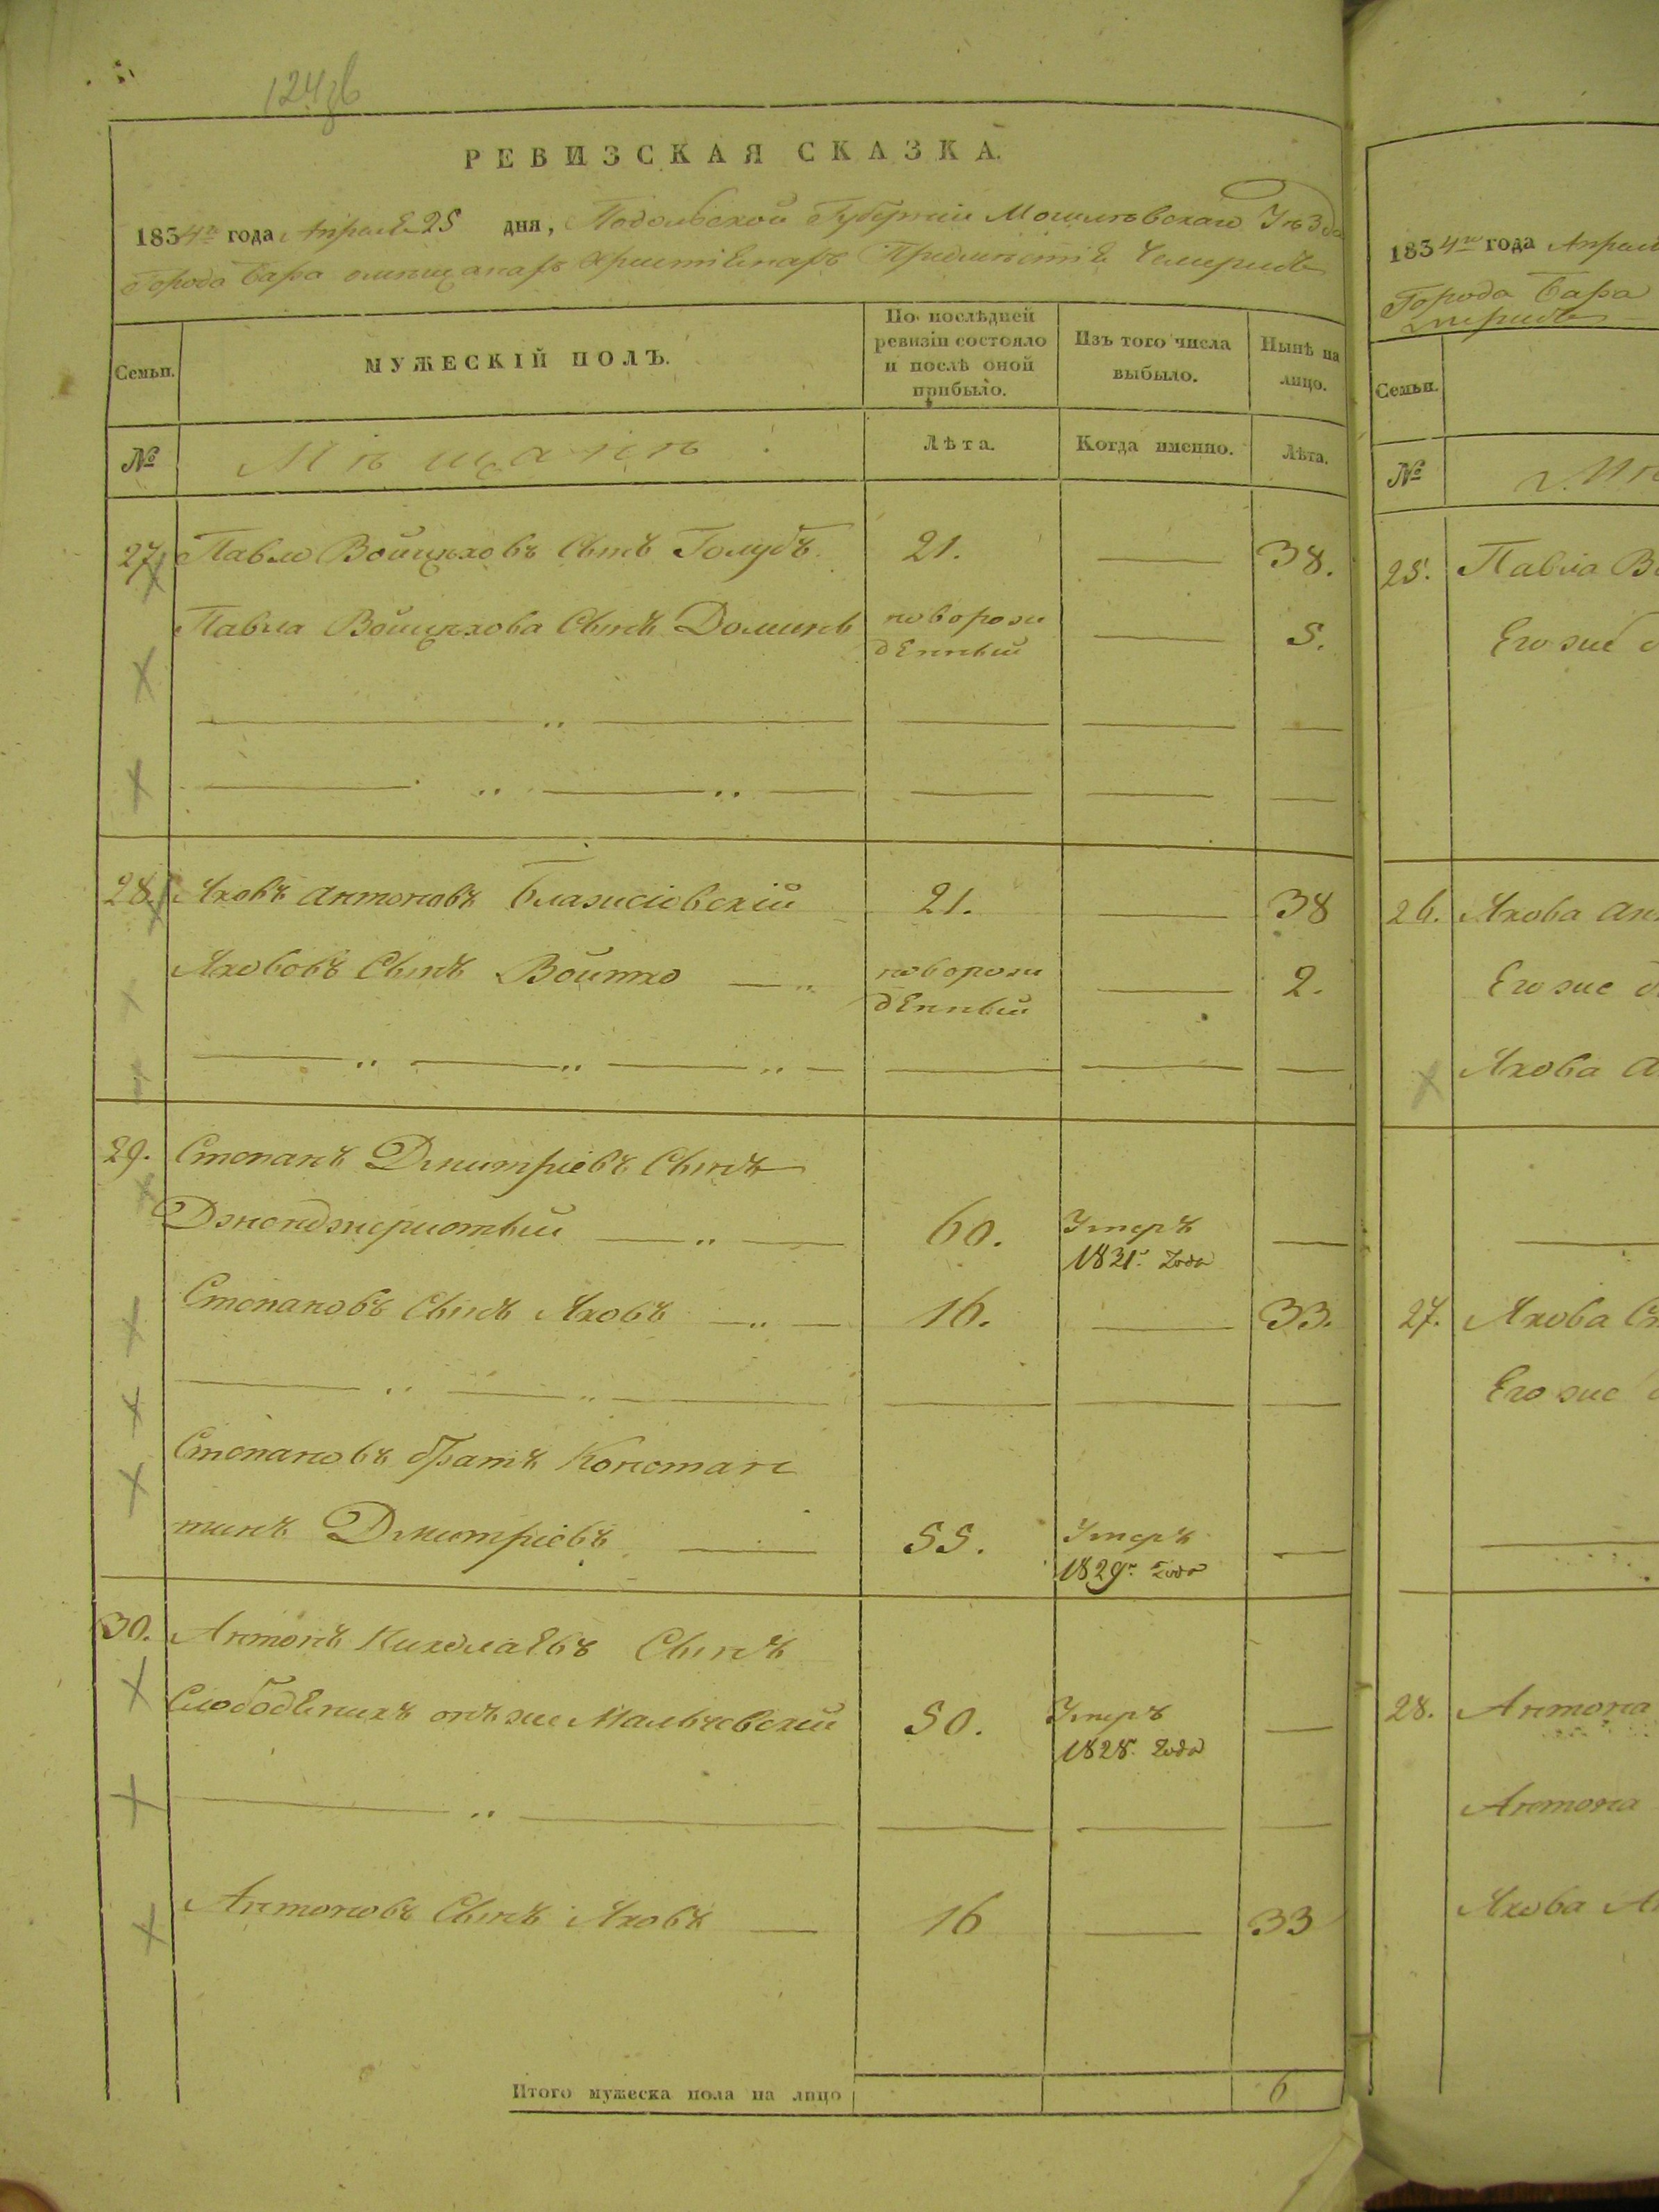 124 зв
РЕВИЗСКАЯ СКАЗКА.
1834го года Апреля 25 дня, Подольской Губернии Могилевскаго Уезда
Города Бара омещанах Християнах Предместие Чемерисъ
Семьи.
МУЖЕСКІЙ ПОЛЪ.
По послѣдней ревизіи состояло и послѣ оной прибыло.
Изъ того числа выбыло.
Нынѣ на лицо.
№
Мещане
Лѣта.
Когда именно.
Лѣта.
27 Павло Войцеховъ Сынъ Голубъ. 21. — 38.
Павла Войцехова Сынъ Доминъ новорож — 5.
денный
28. Яковъ Антоновъ Блажиовскій 21. — 38
Яковов Сынъ Войтко новорож — 2.
денный
29. Степанъ Дмитріевъ Сынъ
60. Умеръ —
1831. Года
Степановъ Сынъ Яковъ 16. — 33.
Степановъ братъ Констан
тинъ Дмитріевъ 55. Умеръ —
1829го Года
30. Антонъ Николаевъ Сынъ
Слободеникъ онъ же Мальчевскій 50. Умеръ —
1828. Года
Антоновъ Сынъ Яковъ 16 — 33
Итого мужеска пола на лицо 6
1834го года Апреля
Города Бара
Семьи.
№
25. Павла В
Его же
26. Якова Ан
Его же
Якова А
27. Якова С
Его же
28. Антона
Антона
Якова А